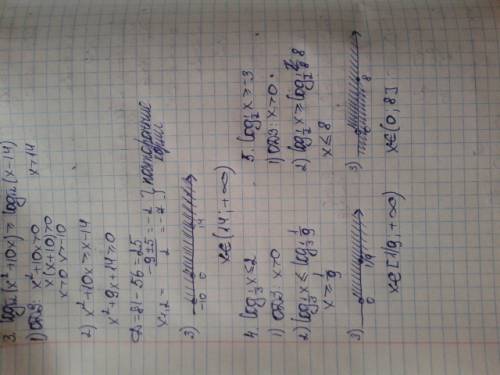 3. log₁₂(x²+10x) ≥ log₁₂(x-14)
1) ОДЗ: x²+10x>0 x>14
x(x+10)>0
x>0 x>-10
2) x²+10x ≥ x-14
x²+9x+14≥0
D=81-56=25
x₁,₂ = (-9±5)/2 = -2
= -7 } посторонние корни
3) -10 0 14
x∈[14,+∞)
4. log_{1/3} x ≤ 2
1) ОДЗ: x>0
2) log_{1/3} x ≤ log_{1/3} 1/9
x ≥ 1/9
3) 0 1/9
x∈[1/9,+∞)
5. log_{1/2} x ≥ -3
1) ОДЗ: x>0.
2) log_{1/2} x ≥ log_{1/2} 8
x ≤ 8
3) 8
x∈(0,8]